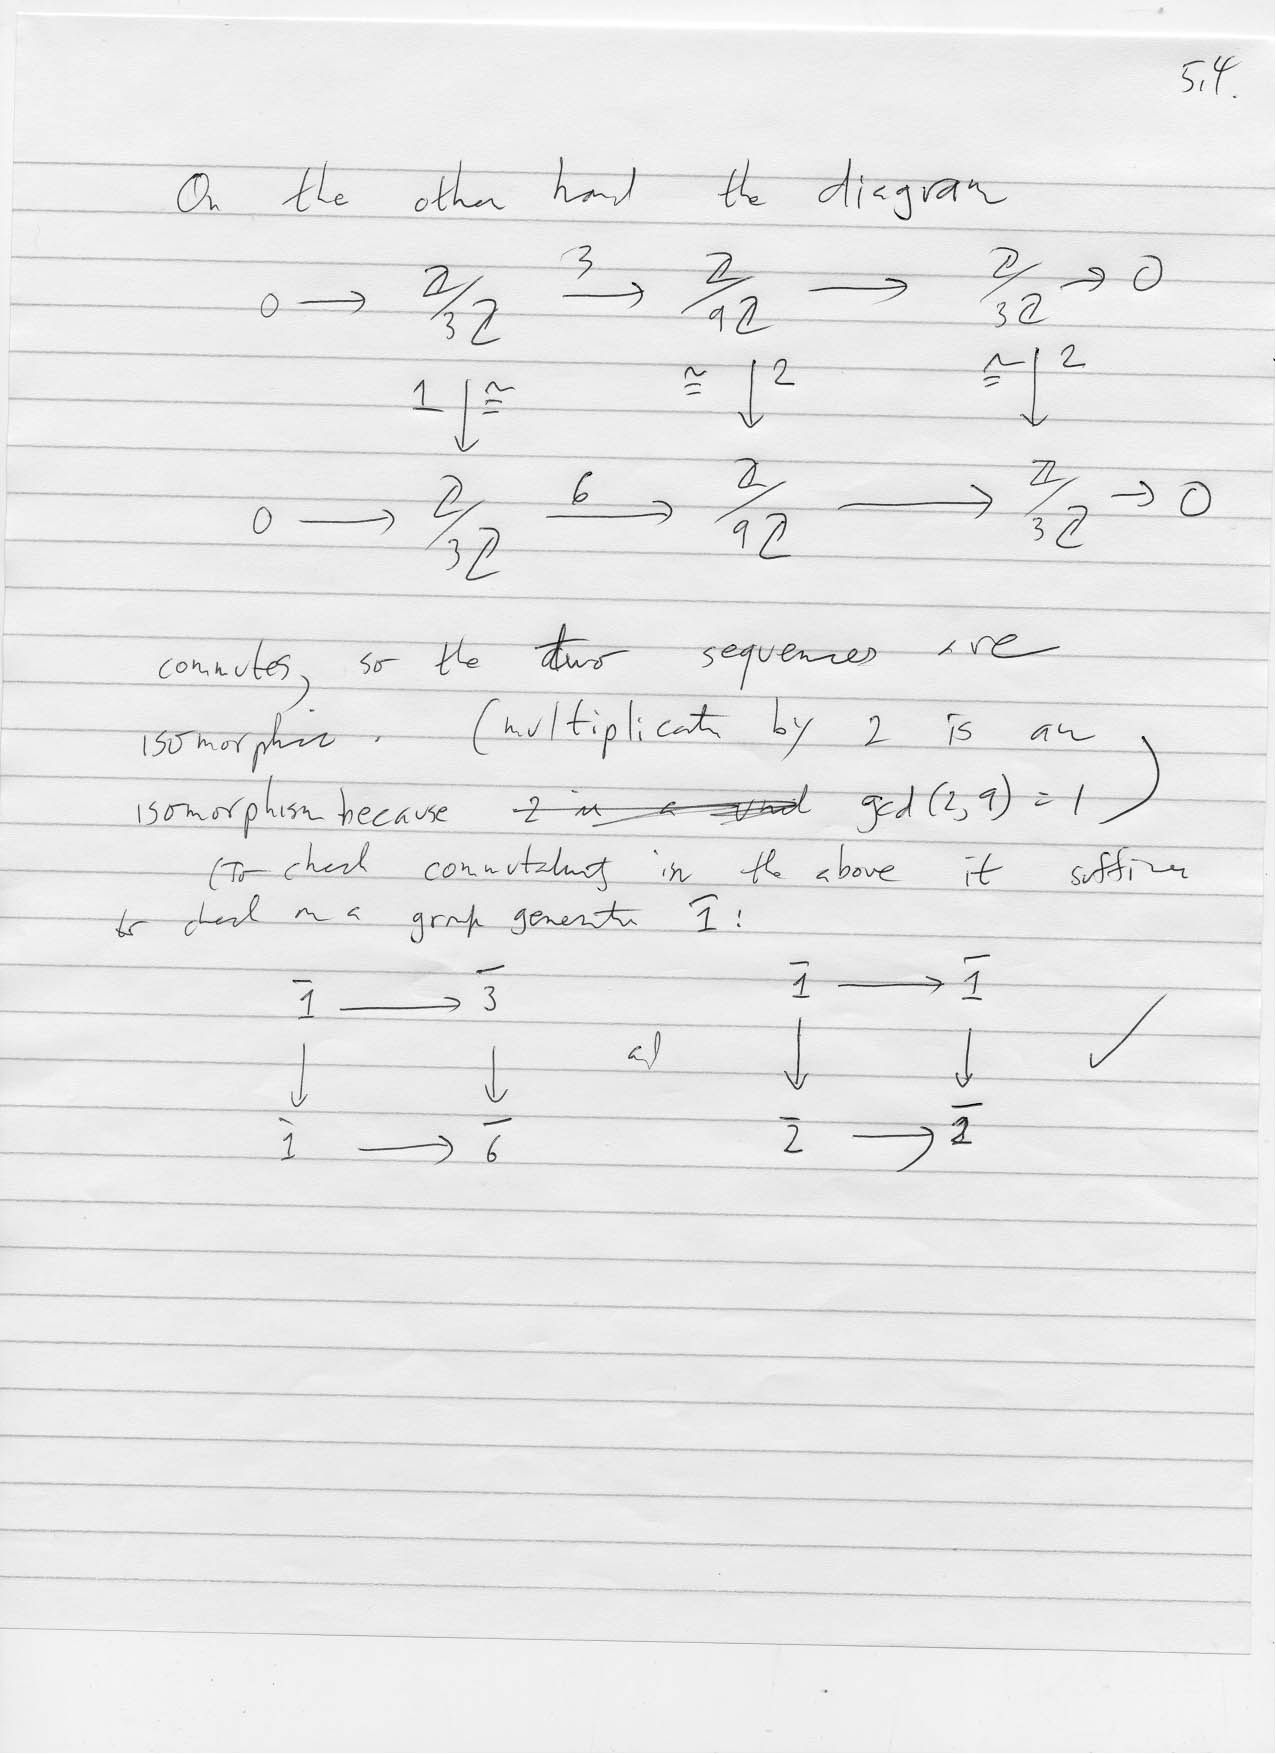 5.4.
On the other hand the diagram
0 → Z/3Z →³ Z/9Z → Z/3Z → 0
1 ↓ ≅ ≅ ↓ 2 ≅ ↓ 2
0 → Z/3Z →⁶ Z/9Z → Z/3Z → 0
commutes, so the two sequences are
isomorphic. (multiplicatn by 2 is an
isomorphism because gcd(2,9) = 1)
(To check commutativity in the above it suffices
to check on a group generator 1̄:
1̄ → 3̄ 1̄ → 1̄
↓ ↓ and ↓ ↓ ✓
1̄ → 6̄ 2̄ → 2̄